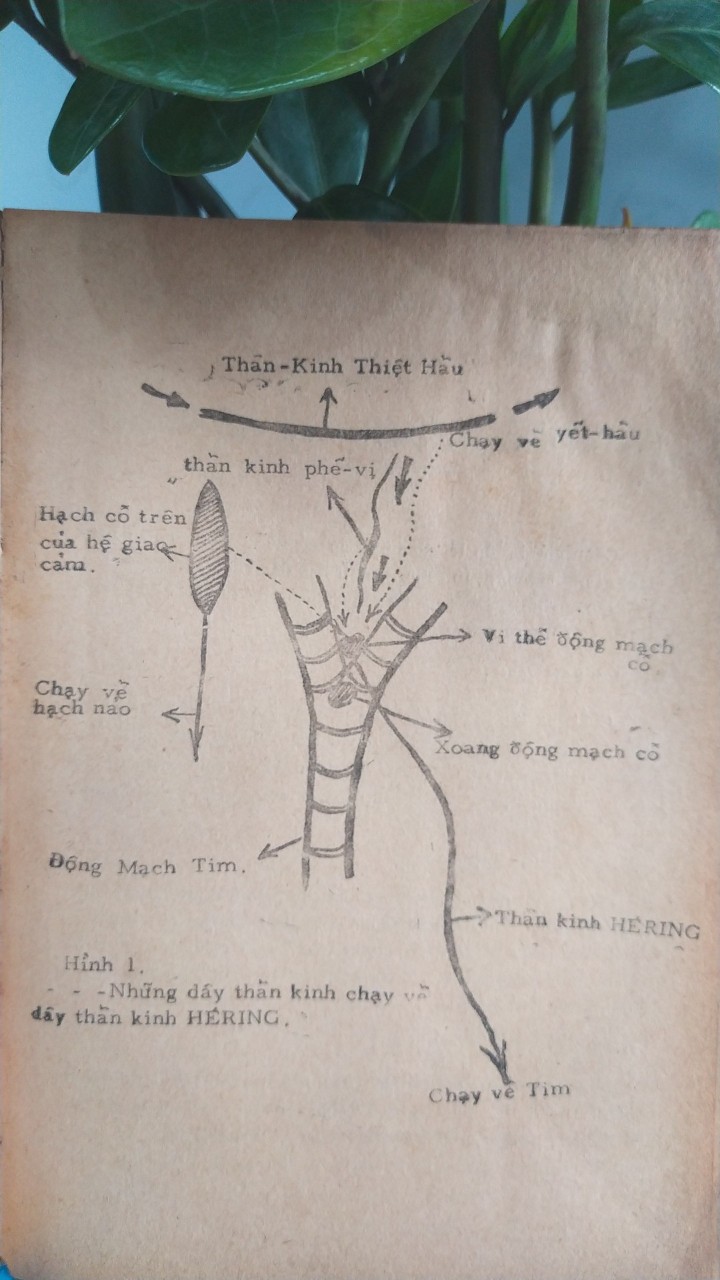 Thần-Kinh Thiệt Hầu
Chạy về yết-hầu
thần kinh phế-vị
Hạch cổ trên
của hệ giao-
cảm.
Vi thể động mạch
cổ
Chạy về
hạch não
Xoang động mạch cổ
Động Mạch Tim.
Thần kinh HÉRING
Hình 1.
- - -Những dây thần kinh chạy về
dây thần kinh HÉRING.
Chạy về Tim